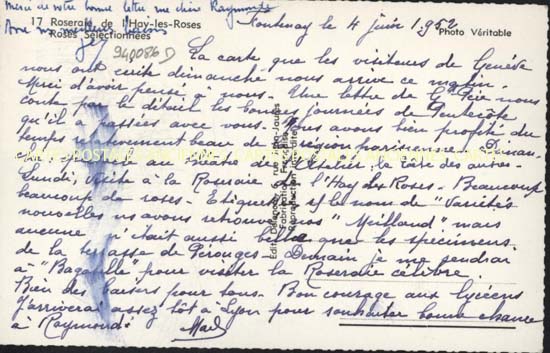 Merci de votre bonne lettre ma chère Raymonde
17 Roseraie de l'Hay-les-Roses
Roses Sélectionnées
meilleurs baisers
940086
Fontenay le 4 juin 1952
Photo Véritable
La carte que les visiteurs de Genève
nous ont écrite dimanche nous arrive ce matin.
Merci d'avoir pensé à nous. Une lettre de nous
conte par le détail les bonnes journées de Pentecôte
qu'il a passées avec vous. Nous avons bien profité du
temps beau de région parisienne. Diman-
che au
Lundi, visite à la Roseraie de l'Hay des Roses. Beaucoup
beaucoup de roses. Etiquettes le nom de "Variétés
nouvelles" ns avons retrouvé vos "Meilland" mais
aucune n'était aussi belle que les specimens
de la terrasse de Pérouges. Demain je me rendrai
à "Bagatelle" pour visiter la Roseraie célèbre.
Bien des baisers pour tous. Bon courage aux lycéens
J'arriverai assez tôt à Lyon pour souhaiter bonne chance
à Raymonde